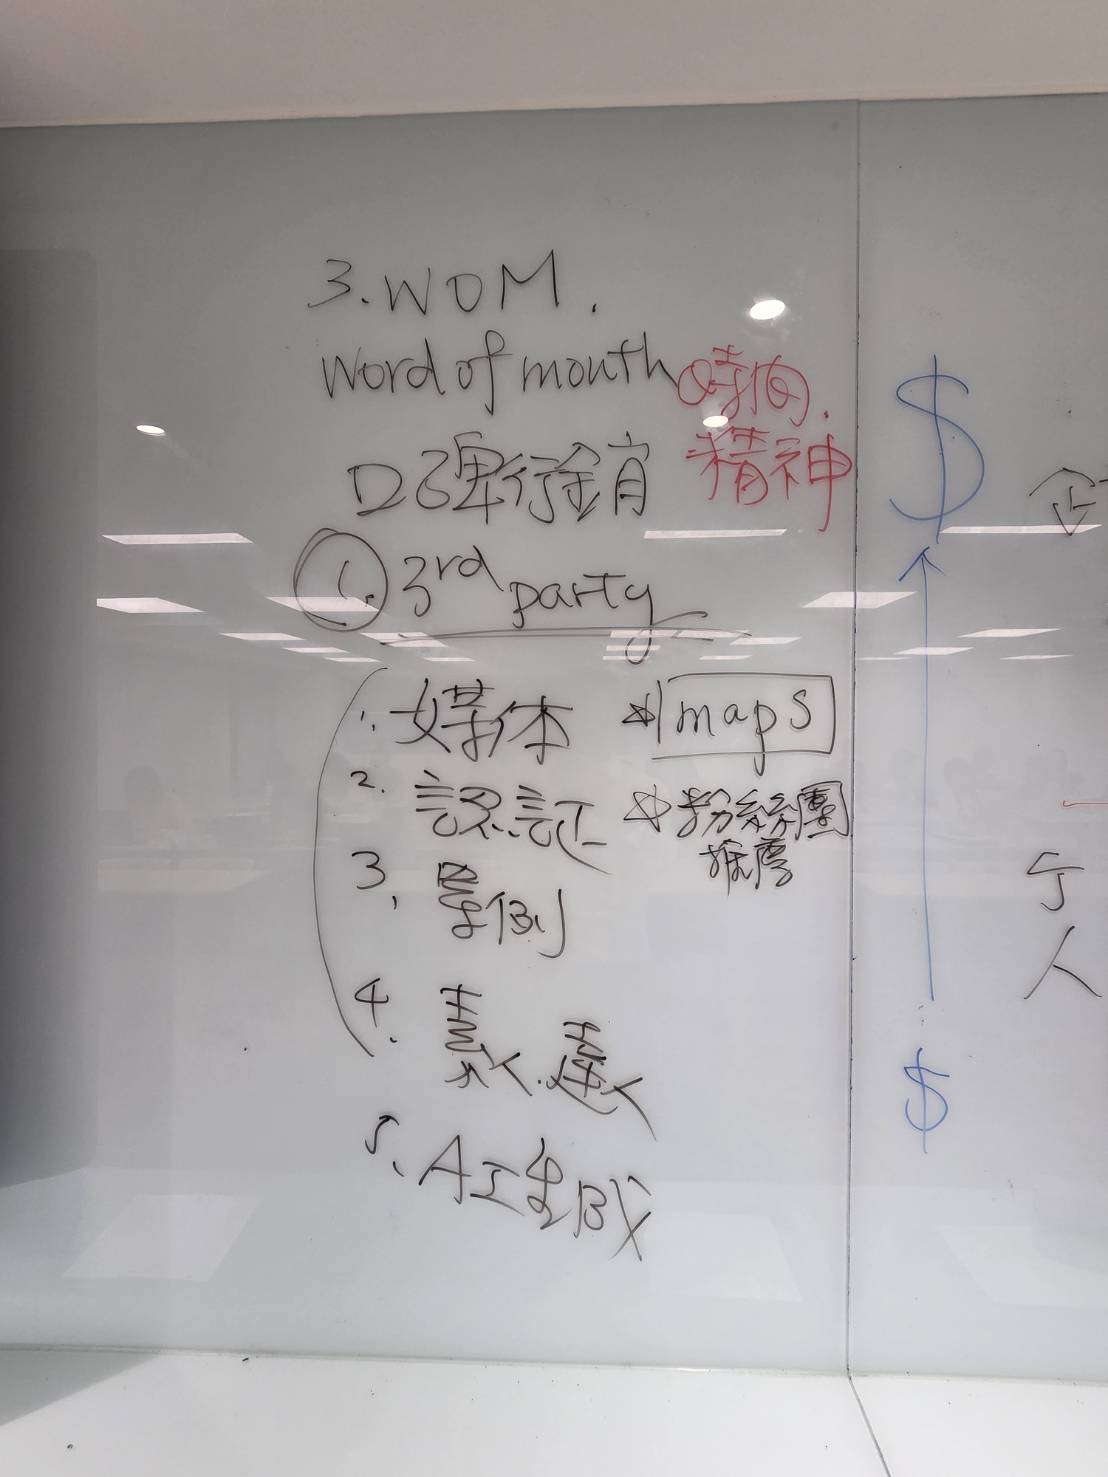 3. WOM.
Word of mouth
時間.
精神
口碑行銷
1. 3rd party
1. 媒体 ☆ maps
2. 認証 ☆ 粉絲團
推薦
3. 案例
4. 素人.達人
5. AI生成
$
$
企
个
人